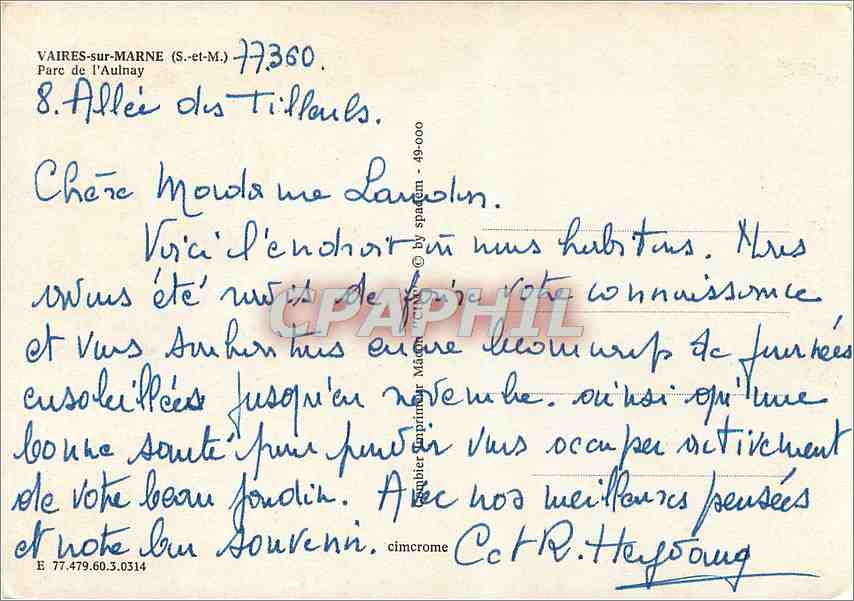 VAIRES-sur-MARNE (S.-et-M.) 77.360.
Parc de l'Aulnay
8. Allée des Tilleuls.
Chère Madame Landin.
Voici l'endroit où nous habitons. Nous
avons été ravis de faire votre connaissance
et vous souhaitons encore beaucoup de journées
ensoleillées jusqu'en novembre. ainsi qu'une
bonne santé pour pouvoir vous occuper activement
de votre beau jardin. Avec nos meilleures pensées
et notre bon souvenir. cimcrome C et R.
E 77.479.60.3.0314
Combier Imprimeur Mâcon "CIM" © by spadem - 49-000
CPAPHIL